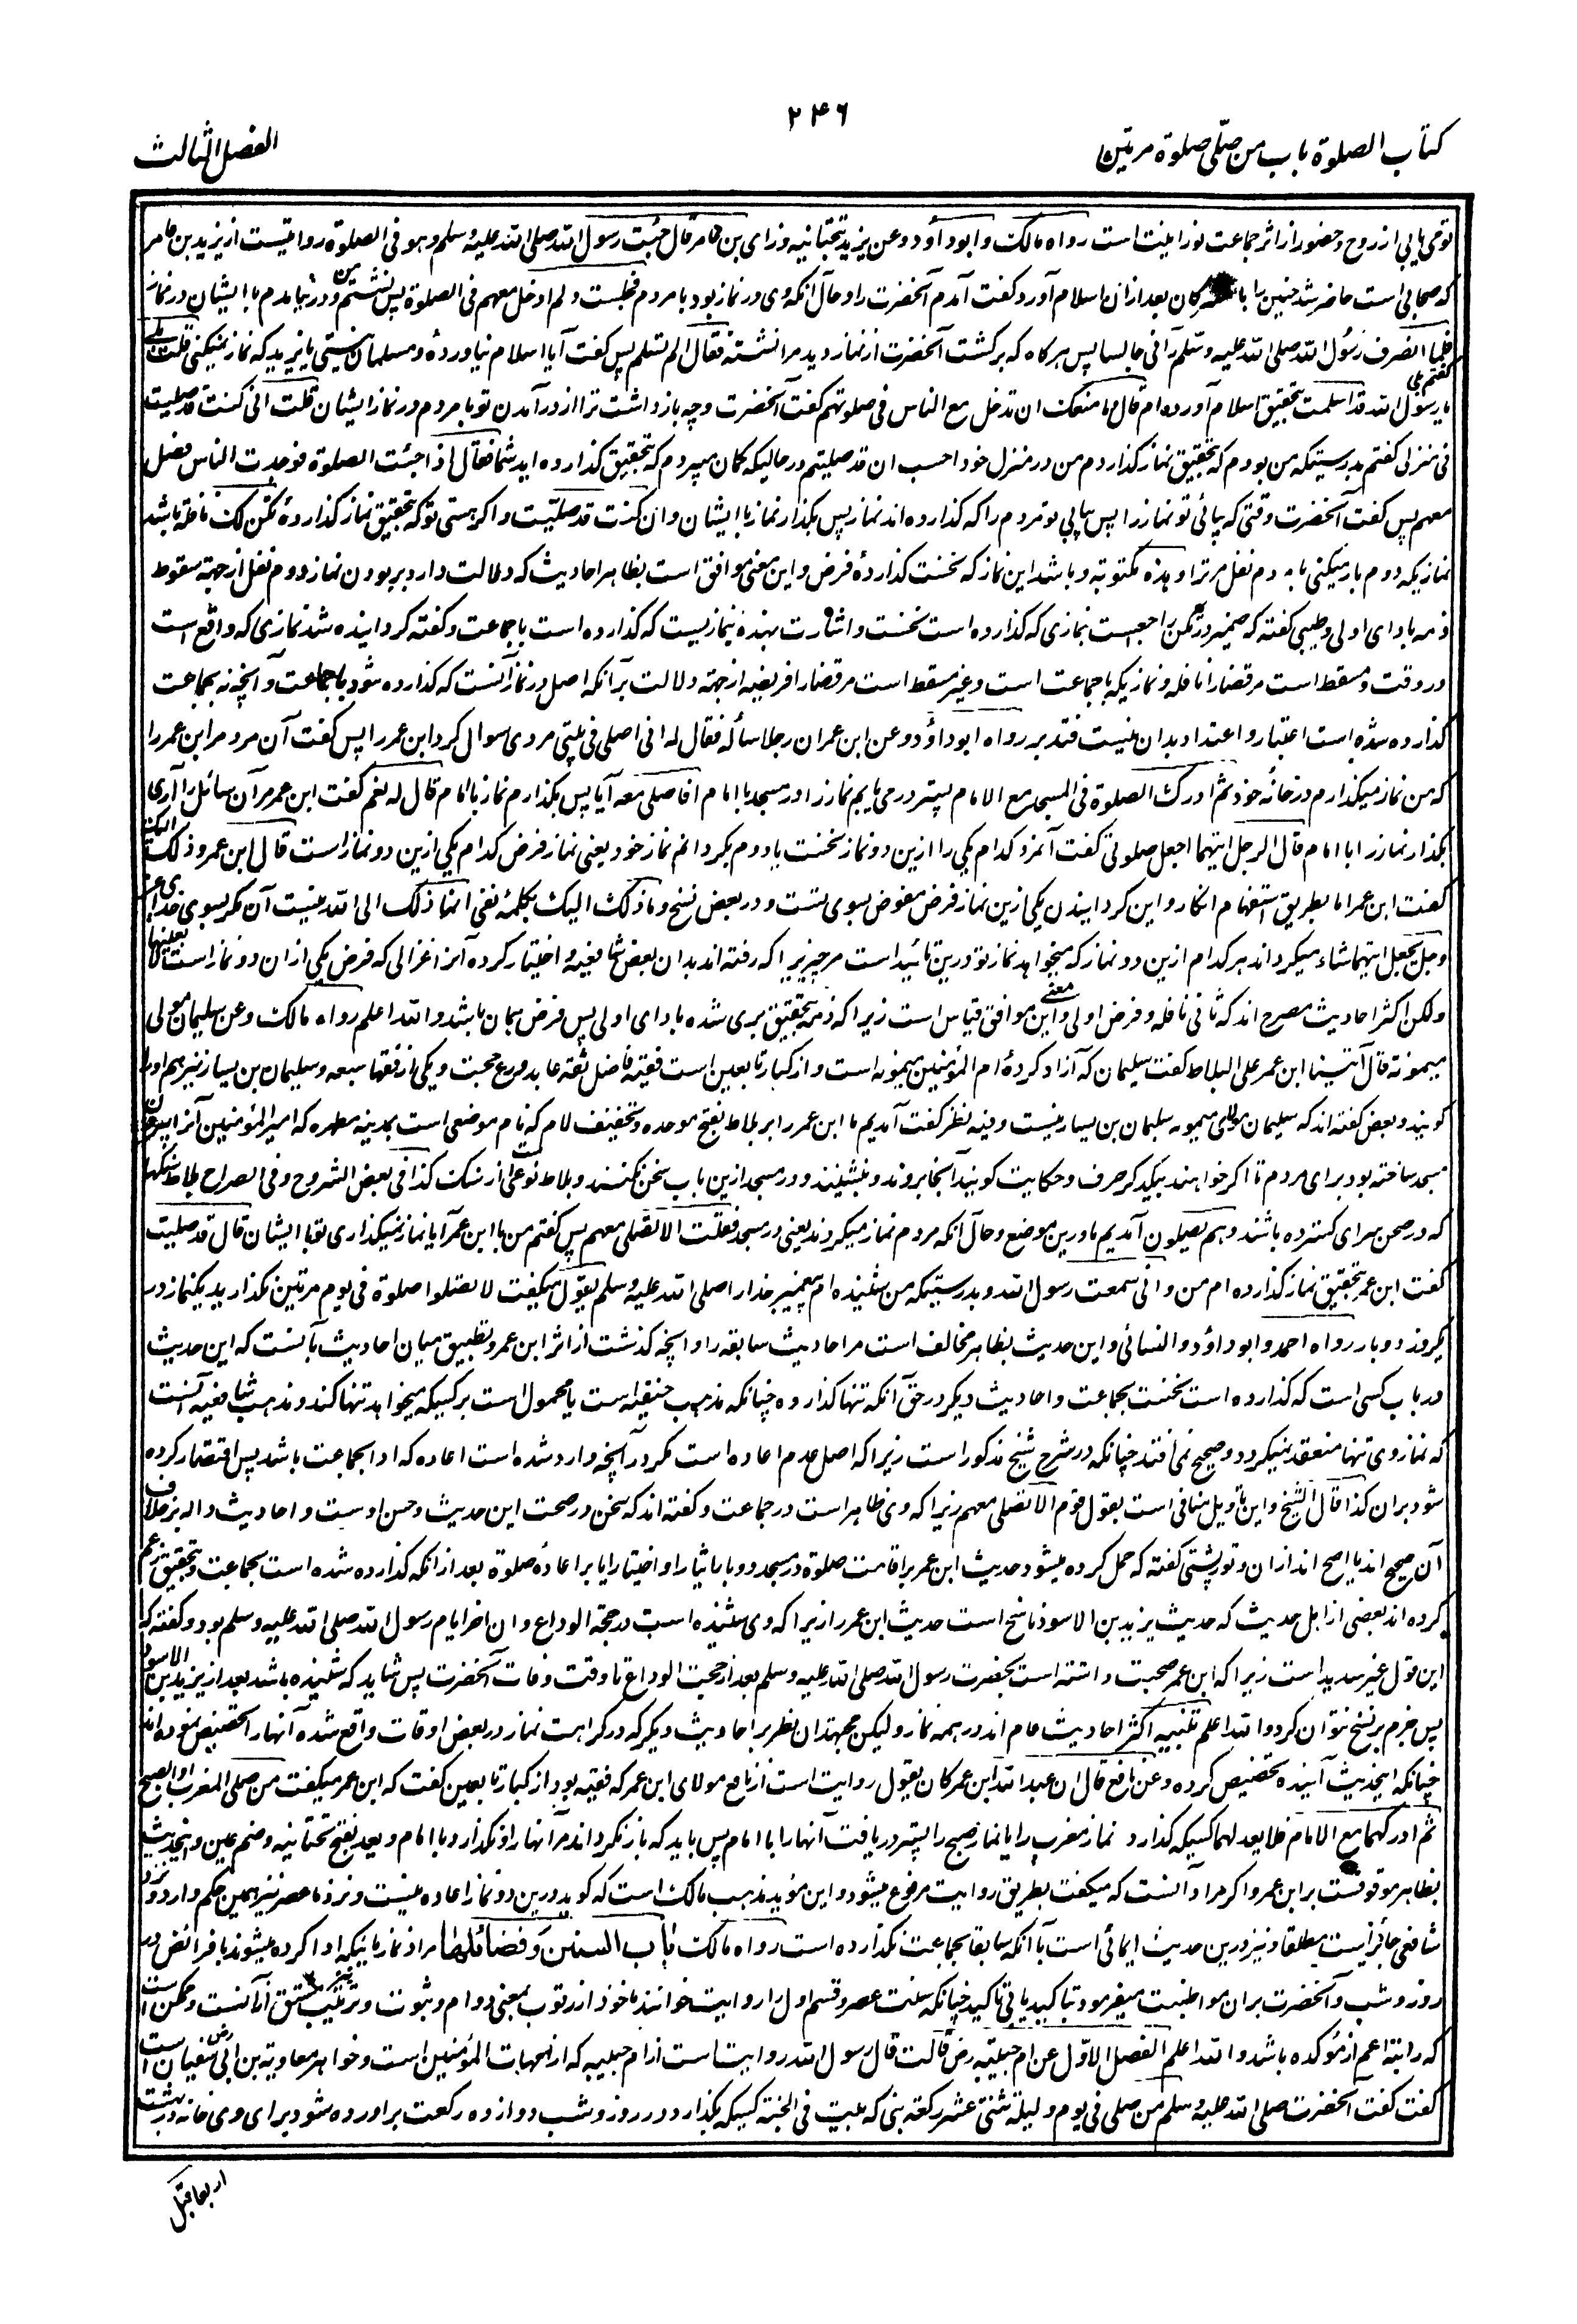 ۲۴۶
کتاب الصلوة باب من صلّی صلوة مرتین
الفصل الثالث
توحی یابی از روح و حضور از اثر جماعت نورانیت است رواه مالک و ابو داؤد و عن یزید بتحتانیه و زای بن عامر قال جئت رسول الله صلی الله علیه و سلم و هو فی الصلوة روایتست از یزید بن عامر
که صحابی است حاضر شد حنین را با مشرکان بعد ازان اسلام آورد گفت آمدم آنحضرت را و حال آنکه وی در نماز بود با مردم فجلست و لم ادخل معهم فی الصلوة پس نشستم من و در نیامدم با ایشان در نماز
فلما انصرف رسول الله صلی الله علیه وسلم رآنی جالسا پس هرگاه که برگشت آنحضرت از نماز و دید مرا نشسته فقال الم تسلم پس گفت آیا اسلام نیاورده و مسلمان نیستی یا یزید که نماز نمیکنی قلت بلی
یا رسول الله قد اسلمت گفتم بلی بتحقیق اسلام آورده ام قال ما منعک ان تدخل مع الناس فی صلوتهم گفت آنحضرت و چه باز داشت ترا از در آمدن تو با مردم در نماز ایشان قلت انی کنت قد صلیت
فی منزلی گفتم بدرستیکه من بودم که بتحقیق نماز گذاردم من در منزل خود احسب ان قد صلیتم در حالیکه گمان میبردم که بتحقیق گذارده اید شما فقال اذا جئت الصلوة فوجدت الناس فصل
معهم پس گفت آنحضرت وقتی که بیائی تو نماز را پس بیابی تو مردم را که گذارده اند نماز پس بگذار نماز با ایشان و ان کنت قد صلیت و اگر هستی تو که بتحقیق نماز گذارده تکن لک نافلة باشد
نمازیکه دوم بار میکنی با مردم نفل مر ترا و هذه مکتوبة و باشد این نماز که نخست گذاردهٔ فرض و این معنی موافق است بظاهر احادیث که دلالت دارد بر بودن نماز دوم نفل از جهة سقوط
ذمه بادای اولی و طیبی گفته که ضمیر در تکن راجعست بنمازی که گذارده است نخست و اشارت بهذه بنمازیست که گذارده است با جماعت و گفته گردانیده شد نمازی که واقع است
در وقت و مسقط است مر قضا را نافله و نمازیکه با جماعت است و غیر مسقط است مر قضا را فریضه از جهة دلالت بر آنکه اصل در نماز آنست که گذارده شود با جماعت و آنچه نه بجماعت
گذارده شده است اعتبار و اعتداد بدان نیست فتدبر رواه ابو داؤد و عن ابن عمر ان رجلا سأله فقال له انی اصلی فی بیتی مردی سوال کرد ابن عمر را پس گفت آن مرد مر ابن عمر را
که من نماز میگذارم در خانهٔ خود ثم ادرک الصلوة فی المسجد مع الامام پستر در می یابم نماز را در مسجد با امام افاصلی معه آیا پس بگذارم نماز با امام قال له نعم گفت ابن عمر مر آن سائل را آری
بگذار نماز را با امام قال الرجل ایتهما اجعل صلوتی گفت آنمرد کدام یکی را ازین دو نماز نخست یا دوم بگردانم نماز خود یعنی نماز فرض کدام یکی ازین دو نماز است قال ابن عمر و ذلک الیک
گفت ابن عمر اما بطریق استفهام انکار و این گردانیدن یکی ازین نماز فرض مفوض بسوی تست و در بعض نسخ و ما ذلک الیک بکلمهٔ نفی انما ذلک الی الله نیست آن مگر بسوی خدای عز
و جل یجعل ایتهما شاء میگرداند هر کدام ازین دو نماز که میخواهد نماز تو درین تائید است مر چیزی را که رفته اند بدان بعض شافعیه و اختیار کرده آنرا غزالی که فرض یکی ازان دو نماز است لا بعینها
ولکن اکثر احادیث مصرح اند که ثانی نافله و فرض اولی و این معنی موافق قیاس است زیرا که ذمه بتحقیق بری شده بادای اولی پس فرض همان باشد و الله اعلم رواه مالک و عن سلیمان مولی
میمونة قال اتینا ابن عمر علی البلاط گفت سلیمان که آزاد کردهٔ ام المؤمنین میمونه است و از کبار تابعین است فقیه فاضل ثقه عابد ورع حجت و یکی از فقهاء سبعه و سلیمان بن یسار نیز هم او را
گویند و بعض گفته اند که سلیمان مولای میمونه سلیمان بن یسار نیست و فیه نظر گفت آمدیم ما ابن عمر را بر بلاط بفتح موحده و تخفیف لام که نام موضعی است بمدینه مطهره که امیر المؤمنین آنرا بیرون
مسجد ساخته بود برای مردم تا اگر خواهند بیکدیگر حرف و حکایت گویند آنجا بروند و بنشینند و در مسجد ازین باب سخن نکنند و بلاط نوعی از سنگ است کذا فی بعض الشروح و فی الصراح بلاط سنگها
که در صحن سرای گسترده باشند و هم یصلون آمدیم ما درین موضع و حال آنکه مردم نماز میکردند یعنی در مسجد فقلت الا تصلی معهم پس گفتم من با ابن عمر آیا نماز نمیگذاری تو با ایشان قال قد صلیت
گفت ابن عمر بتحقیق نماز گذارده ام من و انی سمعت رسول الله و بدرستیکه من شنیده ام پیغمبر خدا را صلی الله علیه و سلم یقول میگفت لا تصلوا صلوة فی یوم مرتین مگذارید یکنماز در
یکروز دو بار رواه احمد و ابو داؤد و النسائی و این حدیث بظاهر مخالف است مر احادیث سابقه را و آنچه گذشت از اثر ابن عمر و تطبیق میان احادیث بآنست که این حدیث
در باب کسی است که گذارده است نخست بجماعت و احادیث دیگر در حق آنکه تنها گذارده چنانکه مذهب حنفیه است یا محمول است بر کسیکه میخواهد تنها کند و مذهب شافعیه آنست
که نماز وی تنها منعقد نمیگردد و صحیح نمی افتد چنانکه در شرح شیخ مذکور است زیرا که اصل عدم اعاده است مگر در آنچه وارد شده است اعاده که ادا بجماعت باشد پس اقتصار کرده
شود بران کذا قال الشیخ و این تأویل منافی است بقول قوم الا تصلی معهم زیرا که وی ظاهر است در جماعت و گفته اند که سخن در صحت این حدیث و حسن اوست و احادیث داله بر خلاف
آن صحیح اند یا اصح اند ازان و تورپشتی گفته که حمل کرده میشود حدیث ابن عمر بر اقامت صلوة در مسجد دو بار ایثارا و اختیارا یا بر اعادهٔ صلوة بعد از آنکه گذارده شده است بجماعت و بتحقیق زعم
کرده اند بعضی از اهل حدیث که حدیث یزید بن الاسود ناسخ است حدیث ابن عمر را زیرا که وی شنیده است در حجة الوداع و ان اخر ایام رسول الله صلی الله علیه وسلم بود و گفته که
این قول غیر سدید است زیرا که ابن عمر صحبت داشته است بحضرت رسول الله صلی الله علیه وسلم بعد از حجت الوداع تا وقت وفات آنحضرت پس شاید که شنیده باشد بعد از یزید بن الاسود
پس جزم بر نسخ نتوان کرد و الله اعلم تنبیه اکثر احادیث عام اند در همه نماز و لیکن مجتهدان نظر بر احادیث دیگر که در کراهت نماز در بعض اوقات واقع شده آنها را تخصیص نموده اند
چنانکه اینحدیث آینده تخصیص کرده و عن نافع قال ان عبد الله ابن عمر کان یقول روایت است از نافع مولای ابن عمر که فقیه بود از کبار تابعین گفت که ابن عمر میگفت من صلی المغرب او الصبح
ثم ادرکهما مع الامام فلا یعد لهما کسیکه گذارد نماز مغرب را یا نماز صبح را پستر دریافت آنها را با امام پس باید که باز نگرداند مر آنها را و نگذارد با امام و یعد بفتح تحتانیه و ضم عین و اینحدیث
بظاهر موقوفست بر ابن عمر و اگر مراد آنست که میگفت بطریق روایت مرفوع میشود و این مؤید مذهب مالک است که گوید درین دو نماز اعاده نیست و نزد ما عصر نیز همین حکم دارد و نزد
شافعی جائز است مطلقا و نیز درین حدیث ایمائی است بآنکه سابقا بجماعت نگذارده است رواه مالک باب السنن و فضائلها مراد نمازهائیکه ادا کرده میشوند با فرائض در
روز و شب و آنحضرت بران مواظبت میفرمود بتأکید یا بی تأکید چنانکه سنت عصر و قسم اول را رواتب خوانند ماخوذ از رتوب بمعنی دوام و ثبوت و ترتیب نیز مشتق ازآنست و ممکن است
که راتبه اعم از مؤکده باشد و الله اعلم الفصل الاول عن ام حبیبة رض قالت قال رسول الله روایت است از ام حبیبه که از امهات المؤمنین است و خواهر معاویة بن ابی سفیان رض است
گفت گفت آنحضرت صلی الله علیه و سلم من صلی فی یوم و لیلة ثنتی عشر رکعة بنی که بیت فی الجنة کسیکه بگذارد در روز و شب دوازده رکعت برآورده شود برای وی خانه در بهشت
اربعا قبل